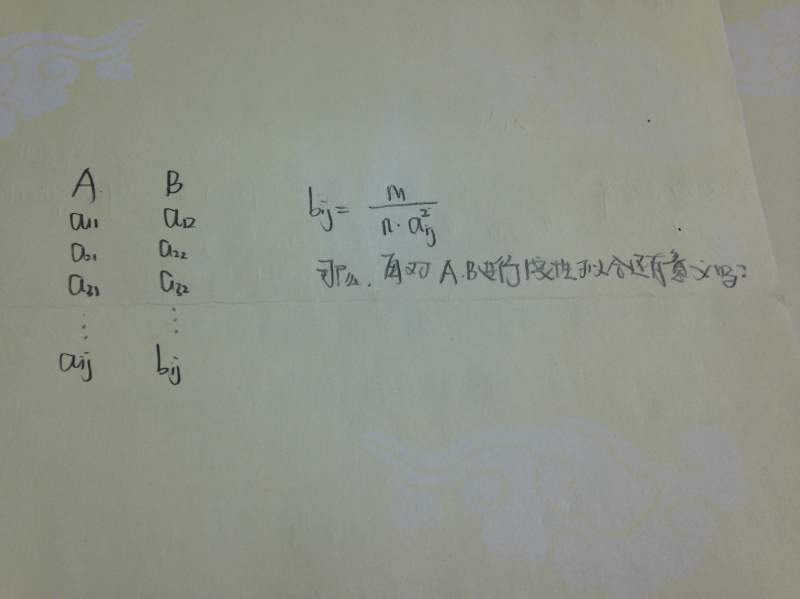 A B
a11 a12
a21 a22
a31 a32
⋮ ⋮
aij bij
bij = m / (n·aij²)
那么,再对A.B进行线性拟合还有意义吗?